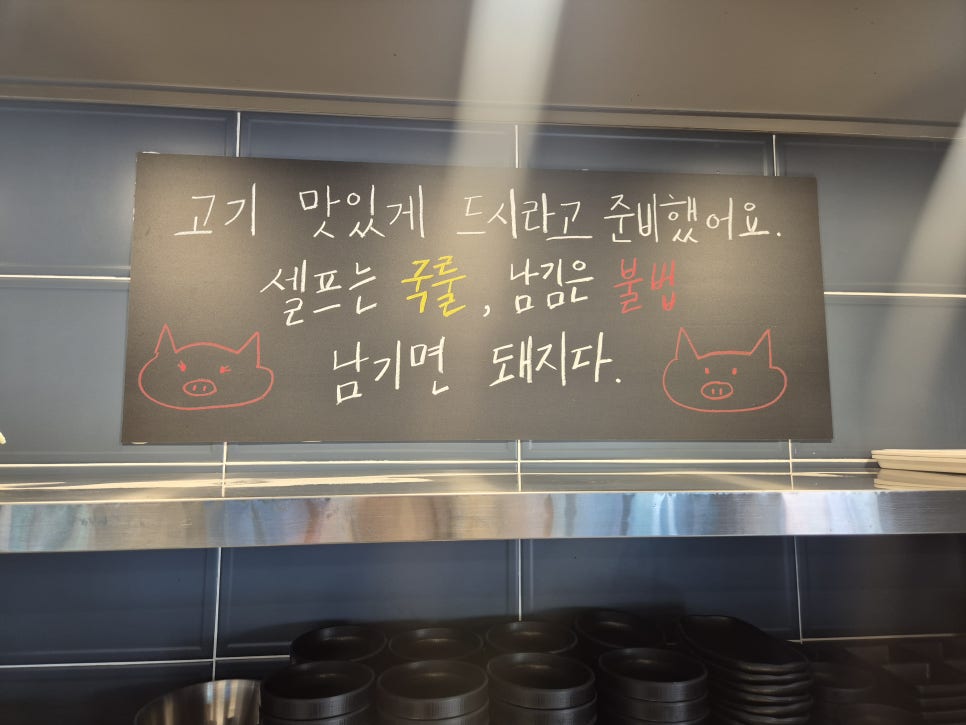 고기 맛있게 드시라고 준비했어요.
셀프는 국룰, 남김은 불법
남기면 돼지다.